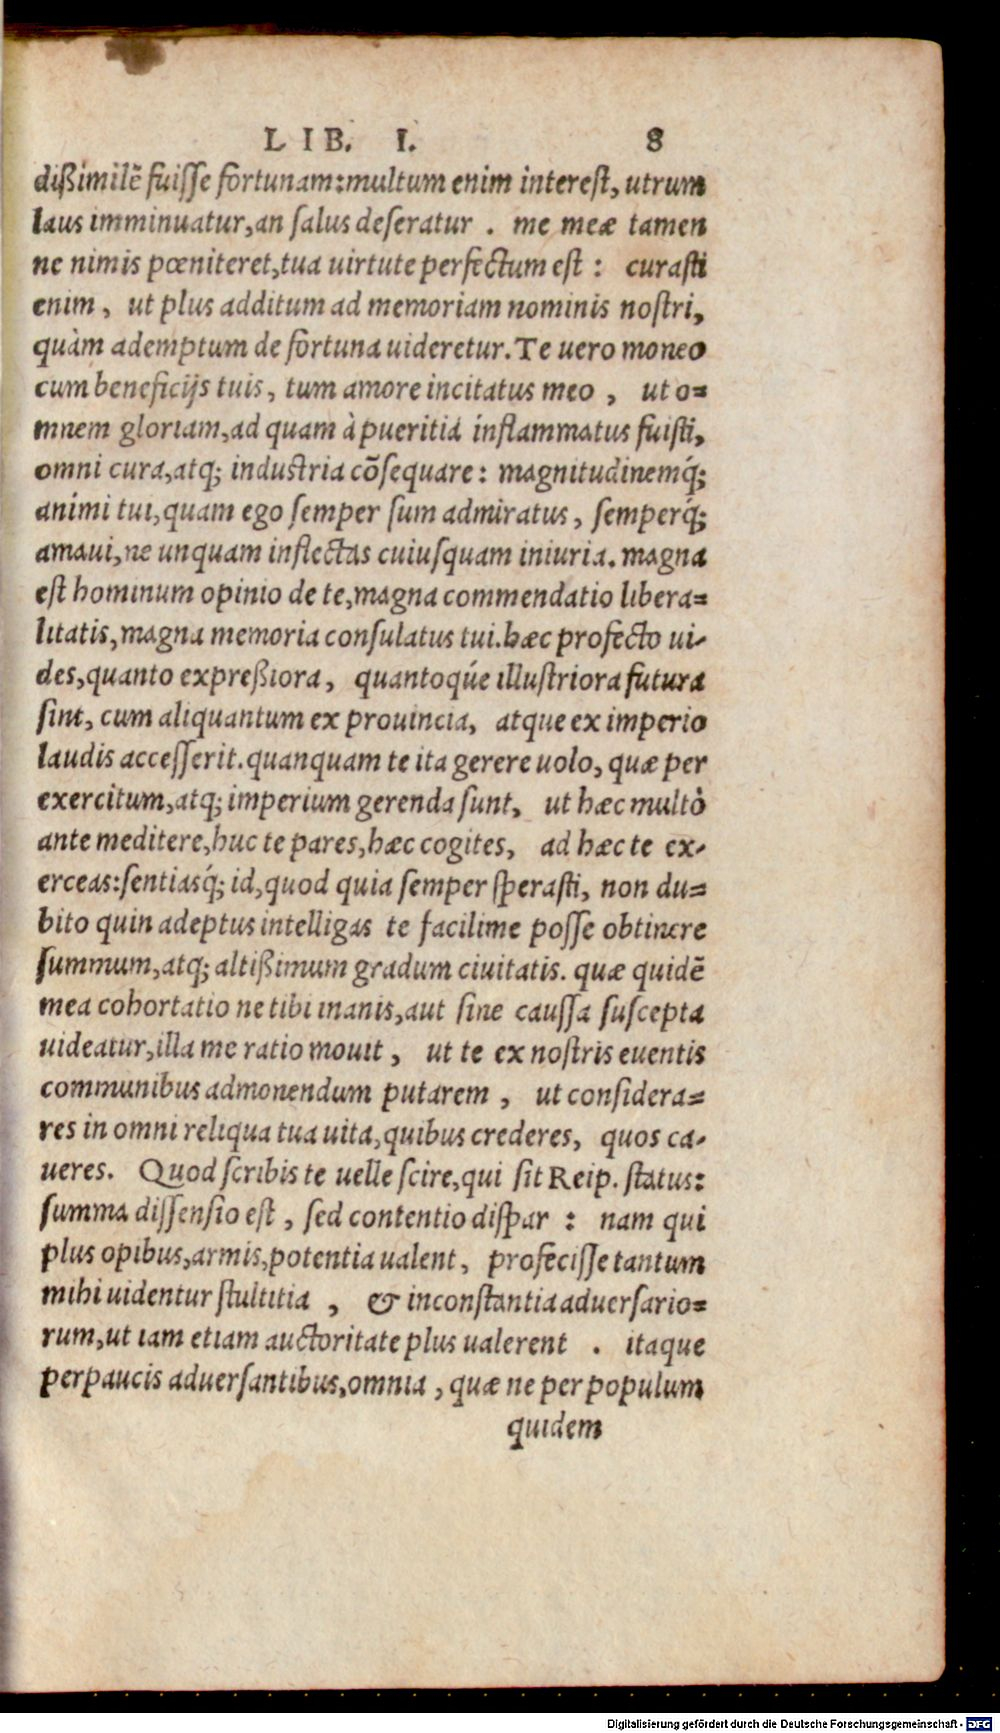 LIB. I. 8
dißimilẽ fuiſſe fortunam:multum enim intereſt, utrum
laus imminuatur,an ſalus deſeratur . me meæ tamen
ne nimis pœniteret,tua uirtute perfectum eſt : curaſti
enim , ut plus additum ad memoriam nominis noſtri,
quàm ademptum de fortuna uideretur. Te uero moneo
cum beneficijs tuis, tum amore incitatus meo , ut o=
mnem gloriam,ad quam à pueritiá inflammatus fuiſti,
omni cura,atq; induſtria cõſequare: magnitudinemq́;
animi tui,quam ego ſemper ſum admiratus, ſemperq́;
amaui,ne unquam inflectas cuiuſquam iniuria. magna
eſt hominum opinio de te,magna commendatio libera=
litatis,magna memoria conſulatus tui.hæc profecto ui-
des,quanto expreßiora, quantoqúe illuſtriora futura
ſint, cum aliquantum ex prouincia, atque ex imperio
laudis acceſſerit.quanquam te ita gerere uolo, quæ per
exercitum,atq; imperium gerenda ſunt, ut hæc multò
ante meditere,huc te pares,hæc cogites, ad hæc te ex-
erceas:ſentiasq́; id,quod quia ſemper ſperaſti, non du=
bito quin adeptus intelligas te facilime poſſe obtinere
ſummum,atq; altißimum gradum ciuitatis. quæ quidẽ
mea cohortatio ne tibi inanis,aut ſine cauſſa ſuſcepta
uideatur,illa me ratio mouit , ut te ex noſtris euentis
communibus admonendum putarem , ut conſidera=
res in omni reliqua tua uita,quibus crederes, quos ca-
ueres. Quod ſcribis te uelle ſcire,qui ſit Reip. ſtatus:
ſumma diſſenſio eſt , ſed contentio diſpar : nam qui
plus opibus,armis,potentia ualent, profeciſſe tantum
mihi uidentur ſtultitia , & inconſtantia aduerſario=
rum,ut iam etiam auctoritate plus ualerent . itaque
perpaucis aduerſantibus,omnia , quæ ne per populum
quidem
Digitalisierung gefördert durch die Deutsche Forschungsgemeinschaft - DFG